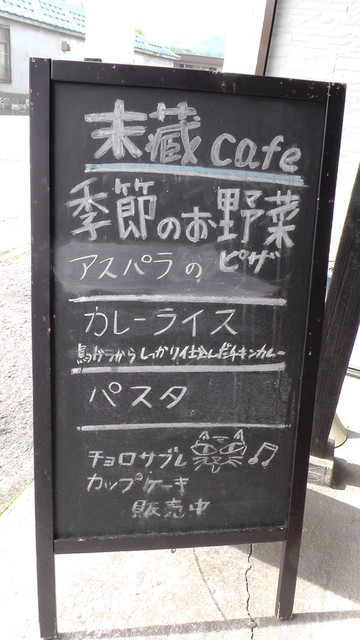 末蔵cafe
季節のお野菜
アスパラの ピザ
カレーライス
鳥ガラからしっかり仕込んだチキンカレー
パスタ
チョロサブレ
カップケーキ
販売中